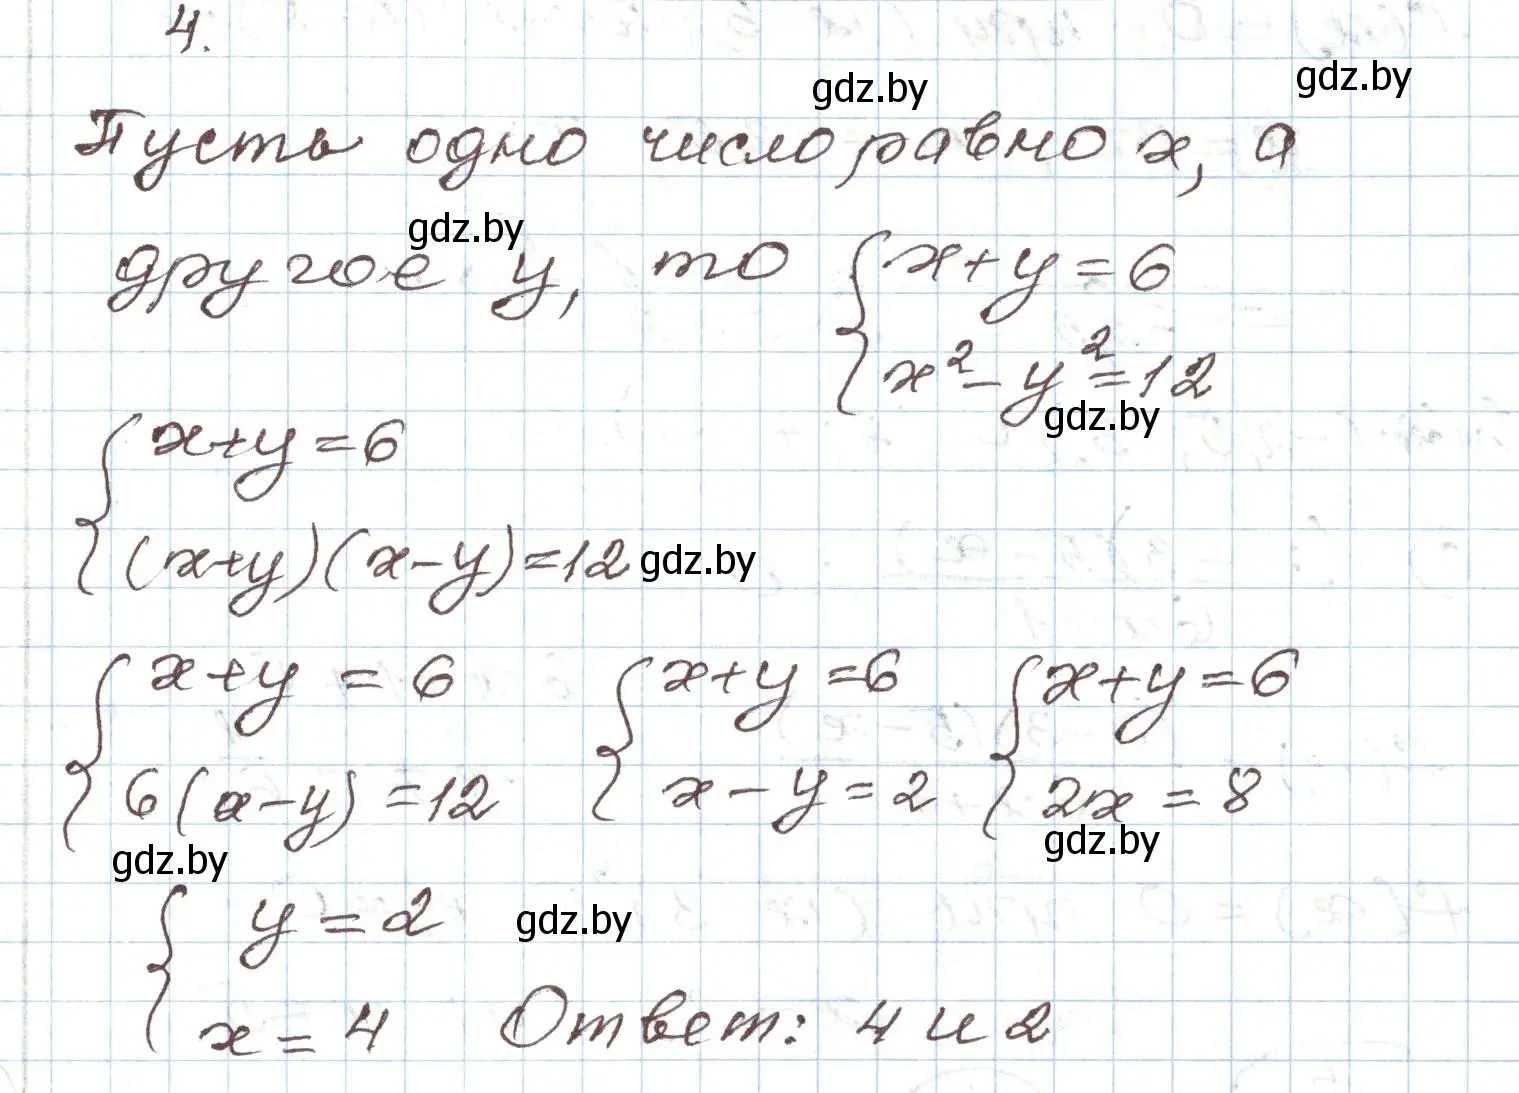 4.
gdz.by
gdz.by
Пусть одно число равно x, а
gdz.by
другое y, то { x+y=6
x²-y²=12
gdz.by
{ x+y=6
(x+y)(x-y)=12
gdz.by
{ x+y=6 { x+y=6 { x+y=6
6(x-y)=12 x-y=2 2x=8
gdz.by
gdz.by
{ y=2
gdz.by
x=4 Ответ: 4 и 2